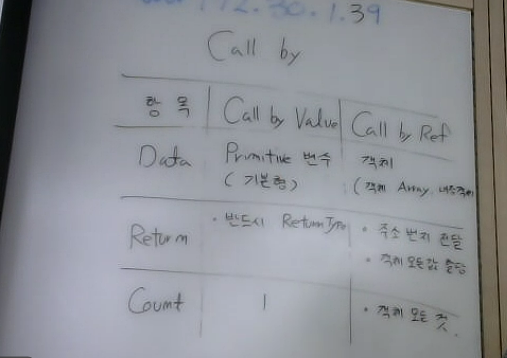 172.30.1.39
Call by
항 목 Call by Value Call by Ref
Data Primitive 변수 객체
(기본형) (객체 Array,
Return • 반드시 Return Type • 주소 번지 전달
• 객체 모든값
Count 1 • 객체 모든 것.